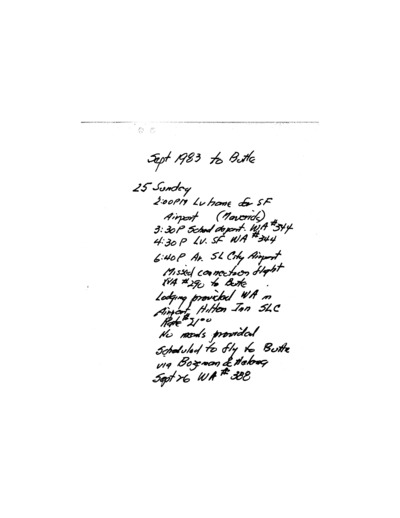 Sept 1983 to Butte
25 Sunday
2:00PM Lv home for SF
Airport (Maverick)
3:30P Sched depart. WA #344
4:30 P Lv. SF WA #344
6:40P Ar. SL City Airport
Missed connection flight
WA #290 to Butte.
Lodging provided WA in
Airport Hilton Inn SLC
Rate $21⁰⁰
No meals provided
Scheduled to fly to Butte
via Bozeman &
Sept 26 WA # 338